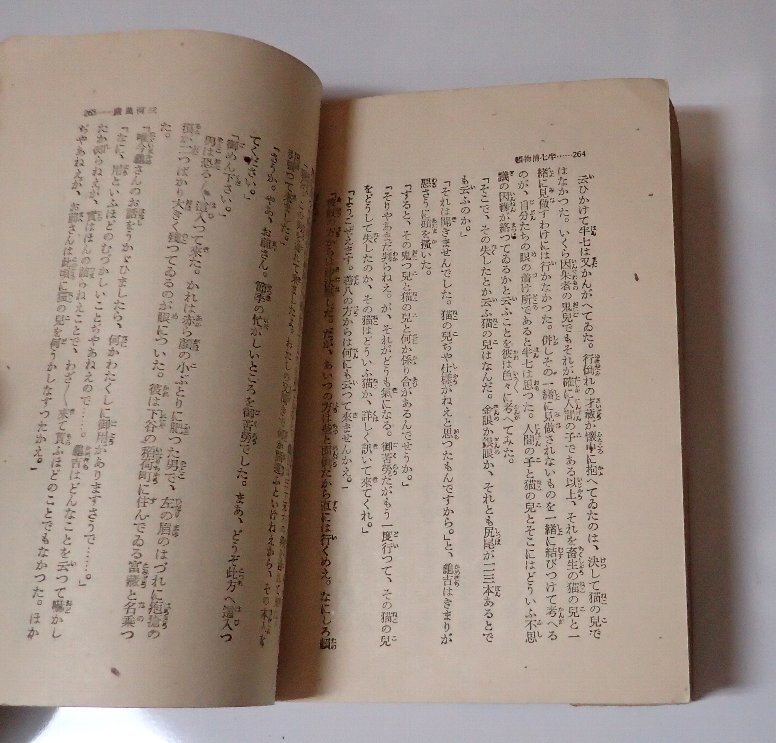 264……半七捕物帳
云ひかけて半七は又かんがへてゐた。行倒れの才蔵が懐中に抱へてゐたのは、決して猫の兒で
はなかつた。いくら因果者の鬼兒でもそれが確に人間の子である以上、それを畜生の猫の兒と一
緒に見做すわけには行かなかつた。併しその一緒に見做されないものを一緒に結びつけて考へる
のが、自分たちの眼の着け所であると半七は思つた。人間の子と猫の兒とそこにはどういふ不思
議の因縁が絡つてゐるかと云ふことを彼は色々に考へてみた。
「そこで、その失したとか云ふ猫の兒はなんだ。金眼か銀眼か、それとも尻尾が二三本あるとで
も云ふのか。」
「それは聞きませんでした。猫の兒ぢや仕様がねえと思つたもんですから。」と、龜吉はきまりが
惡さうに頭を掻いた。
「すると、その鬼つ兒と猫の兒と何か係り合があるんでせうか。」
「そりやあまだ判らねえ。が、それがどうも氣になる。御苦勞だがもう一度行つて、その猫の兒
をどうして失したのか、その猫はどういふ猫か、詳しく訊いて來てくれ。」
「ようごぜえます。善八の方からは何にも云つて來ませんかえ。」
三河萬歳……265
「さうか。やあ、お前さん。節季の忙がしいところを御苦勞でした。まあ、どうぞ此方へ這入つ
てください。」
「御めん下さい。」
男は恐る〱這入つて來た。かれは赤ら顔の小ぶとりに肥つた男で、左の眉のはづれに疱瘡の
痕が二つばかり大きく殘つてゐるのが眼についた。彼は下谷の稻荷町に住んでゐる富藏と名乗つ
た。
「唯今龜さんのお話をうかゞひましたら、何かわたくしに御用がありますさうで……。」
「なに、用といふほどのむづかしいことぢやあねえので……。龜吉はどんなことを云つて嚇かし
たか知らねえが、實はほんの詰らねえことで、わざ〱來て貰ふほどのことでもなかつた。ほか
ぢやあねえが、お前さんは此頃に猫の兒を何うかしなすつたかえ。」